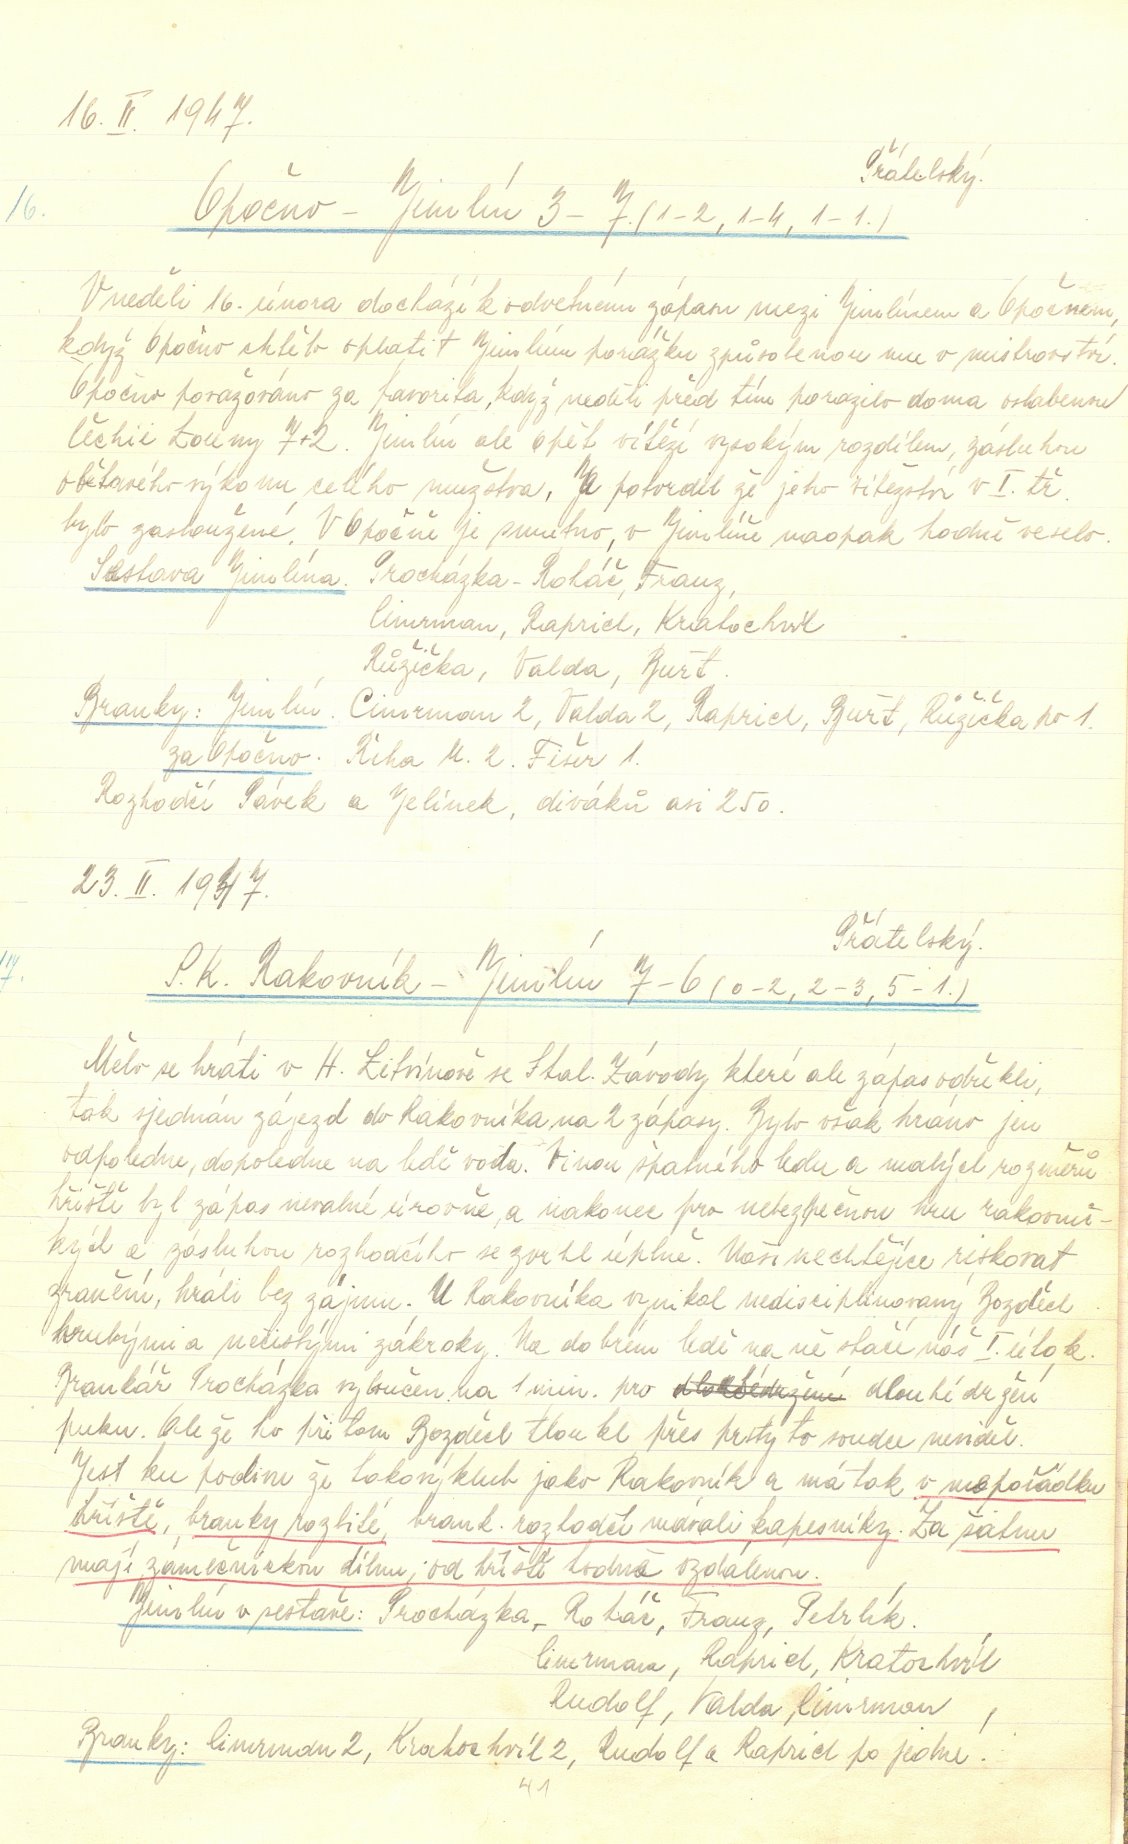 16. II. 1947.
Přátelský.
16.
Opočno - Jimlín 3-7. (1-2, 1-4, 1-1.)
V neděli 16. února dochází k odvetném zápasu mezi Jimlínem a Opočnem,
když Opočno chtělo oplatit Jimlínu porážku způsobenou mu v mistrovství.
Opočno považováno za favorita, když neděli před tím porazilo doma oslabenou
těchii Louny 7+2. Jimlín ale opět vítězí vysokým rozdílem, zásluhou
obětavého výkonu celého mužstva. Ja potvrdil že jeho vítězství v I. tř.
bylo zasloužené. V Opočně je smutno, v Jimlíně naopak hodně veselo.
Sestava Jimlína. Procházka - Roháč, Franz,
Cimrman, Raprich, Kratochvíl
Růžička, Valda, Buřt.
Branky: Jimlín. Cimrman 2, Valda 2, Raprich, Buřt, Růžička po 1.
za Opočno. Říha M. 2. Fišer 1.
Rozhodčí Pávek a Jelínek, diváků asi 250.
23. II. 1947.
Přátelský.
17.
S. K. Rakovník - Jimlín 7-6 (0-2, 2-3, 5-1.)
Mělo se hráti v H. Litvínově se Stal. Závody které ale zápas odřekli,
tak sjednán zájezd do Rakovníka na 2 zápasy. Bylo však hráno jen
odpoledne, dopoledne na ledě voda. Vinou špatného ledu a malých rozměrů
hřiště byl zápas nevalné úrovně, a nakonec pro nebezpečnou hru rakovnic-
kých a zásluhou rozhodčího se zvrhl úplně. Naši nechtějíce riskovat
zranění, hráli bez zájmu. U Rakovníka vynikal nedisciplinovaný Bozděch
hrubými a nečistými zákroky. Na dobrém ledě na ně stačí náš I. útok.
Brankář Procházka vyloučen na 1 min. pro dlouhé držení
puku. Ale že ho při tom Bozděch tloukl přes prsty to soudce neviděl.
Jest ku podivu že takový klub jako Rakovník a má tak v nepořádku
hřiště, branky rozbité, brank. rozhodčí mávali kapesníky. Za šatnu
mají zámečnickou dílnu, od hřiště hodně vzdálenou.
Jimlín v sestavě: Procházka - Roháč, Franz, Petrlík.
Cimrman, Raprich, Kratochvíl
Rudolf, Valda, Cimrman
Branky: Cimrman 2, Kratochvíl 2, Rudolf a Raprich po jedné.
41